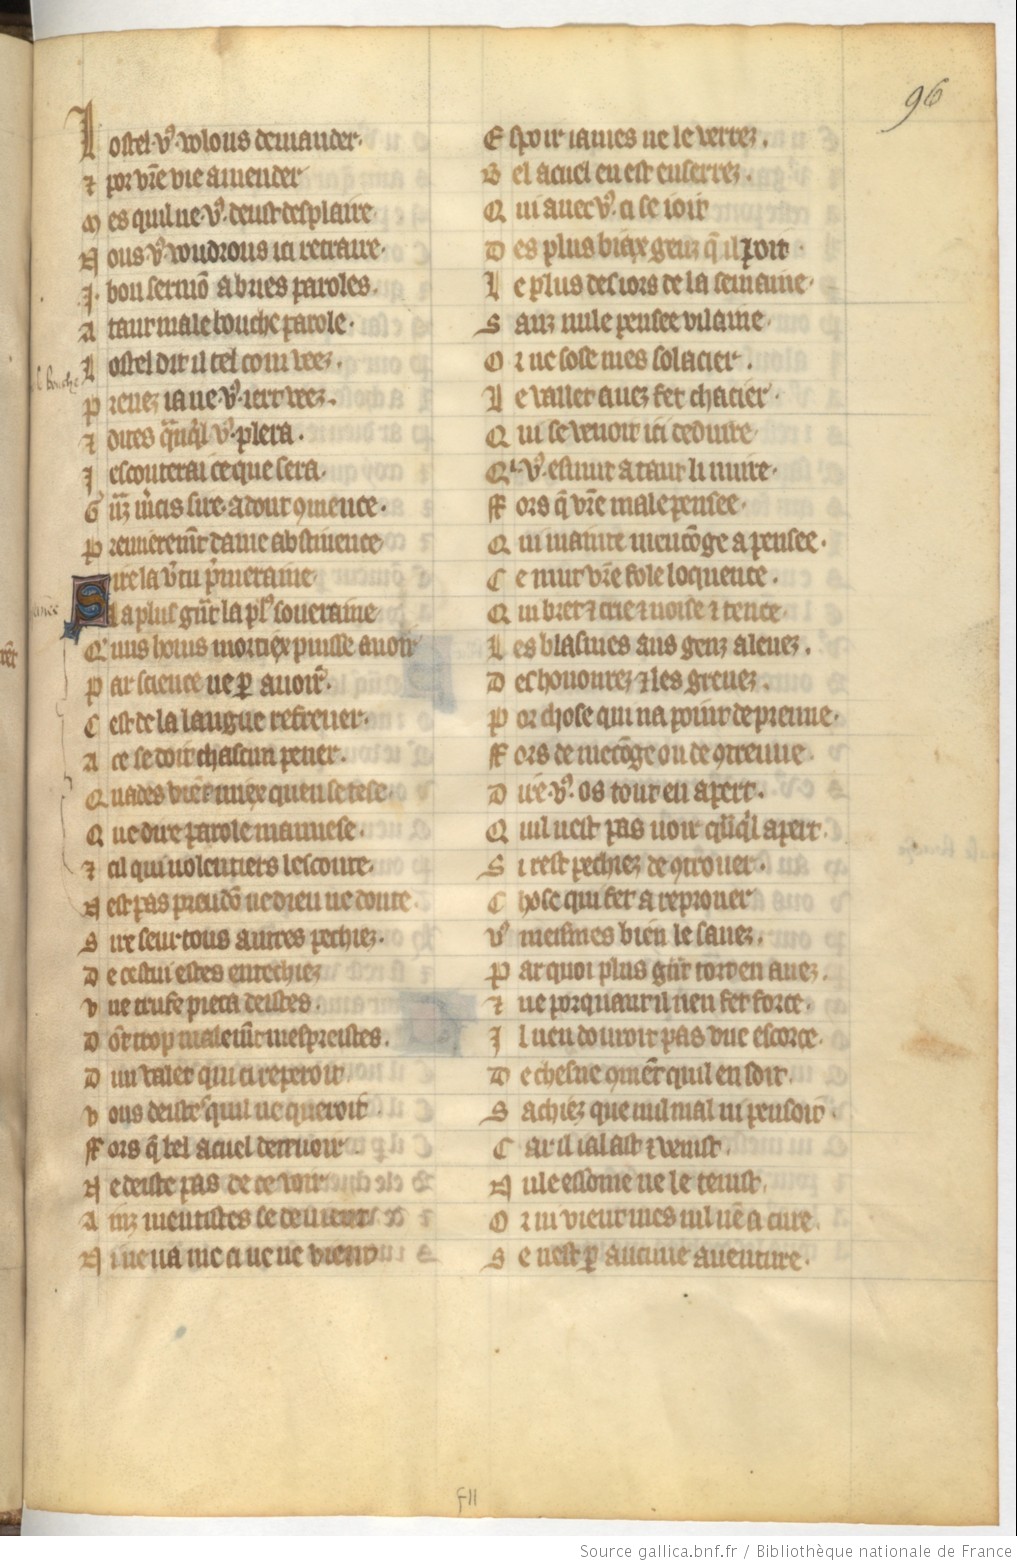 96
L ostel vꝰ volons demander·
⁊ por vr̃e vie amender
M es quil ne vꝰ deust desplaire·
N ous vꝰ voudrons ici retraire·
J· bon sermõ a bries paroles·
A tant male bouche parole·
L ostel dit il tel com veez·
P renez ia ne vꝰ iert veez·
⁊ dites q̃nq̃l vꝰ plera·
J escouterai ce que sera·
G ñz m̃cis sire· adont ꝯmence·
P remierem̃t dame abstinence
S ire la v̾tu p̃meraine·
L a plus gñt la plꝰ soueraine·
Q̃ nus hons mortiex puisse auoir
P ar science ne ꝑ auoir·
C est de la langue refrener·
A ce se doit chascun pener·
Q uades vient miex quen se tese·
Q ue dire parole mauuese·
⁊ cil qui uolentiers lescoute·
N est pas preudõ ne dieu ne doute
S ire seur tous autres pechiez·
D e cestui estes entechiez
V ne trufe pieca deistes·
D õt trop malem̃t mespreistes·
D un valet qui ci reperoit·
V ous deistes quil ne queroit·
ff ors q̃ bel acuel deceuoir·
N e deiste pas de ce voir
A inz mentistes se deuient
N i ne ua me ci ne ne vient
E spoir iames ne le verrez·
B el acuel en est enserrez·
Q ui auec vꝰ ci se ioit
D es plus biax geuz q̃ il poit
L e plus des iors de la semaine·
S anz nule pensee vilaine·
O r ne sose mes solacier·
L e vallet auez fet chacier·
Q ui se venoit ici deduire·
Qⁱ vꝰ esmut a tant li nuire·
ff ors q̃ vr̃e male pensee·
Q ui mainte mencõge a pensee·
C e mut vr̃e fole loquence·
Q ui bret ⁊ crie ⁊ noise ⁊ tence·
L es blasmes aus genz aleuez·
D eshonourez ⁊ les greuez·
P or chose qui na point de prenue·
ff ors de mẽcõge ou de ꝯtreuue·
D ire vꝰ os tout en apert·
Q uil nest pas uoir q̃nq̃l apert·
S i rest pechiez de ꝯtrouer·
C hose qui fet a reprouer
Vꝰ meismes bien le sauez·
P ar quoi plus gñt tort en auez·
⁊ ne porquant il nen fet force·
J l nen douroit pas vne escorce·
D e chesne ꝯmẽt quil en soit·
S achiez que nul mal ni pensoit·
C ar il i alast ⁊ venist·
N ule essoine ne le tenist·
O r ni vient mes nil nẽ a cure·
S e nest ꝑ aucune auenture·
Source gallica.bnf.fr / Bibliothèque nationale de France